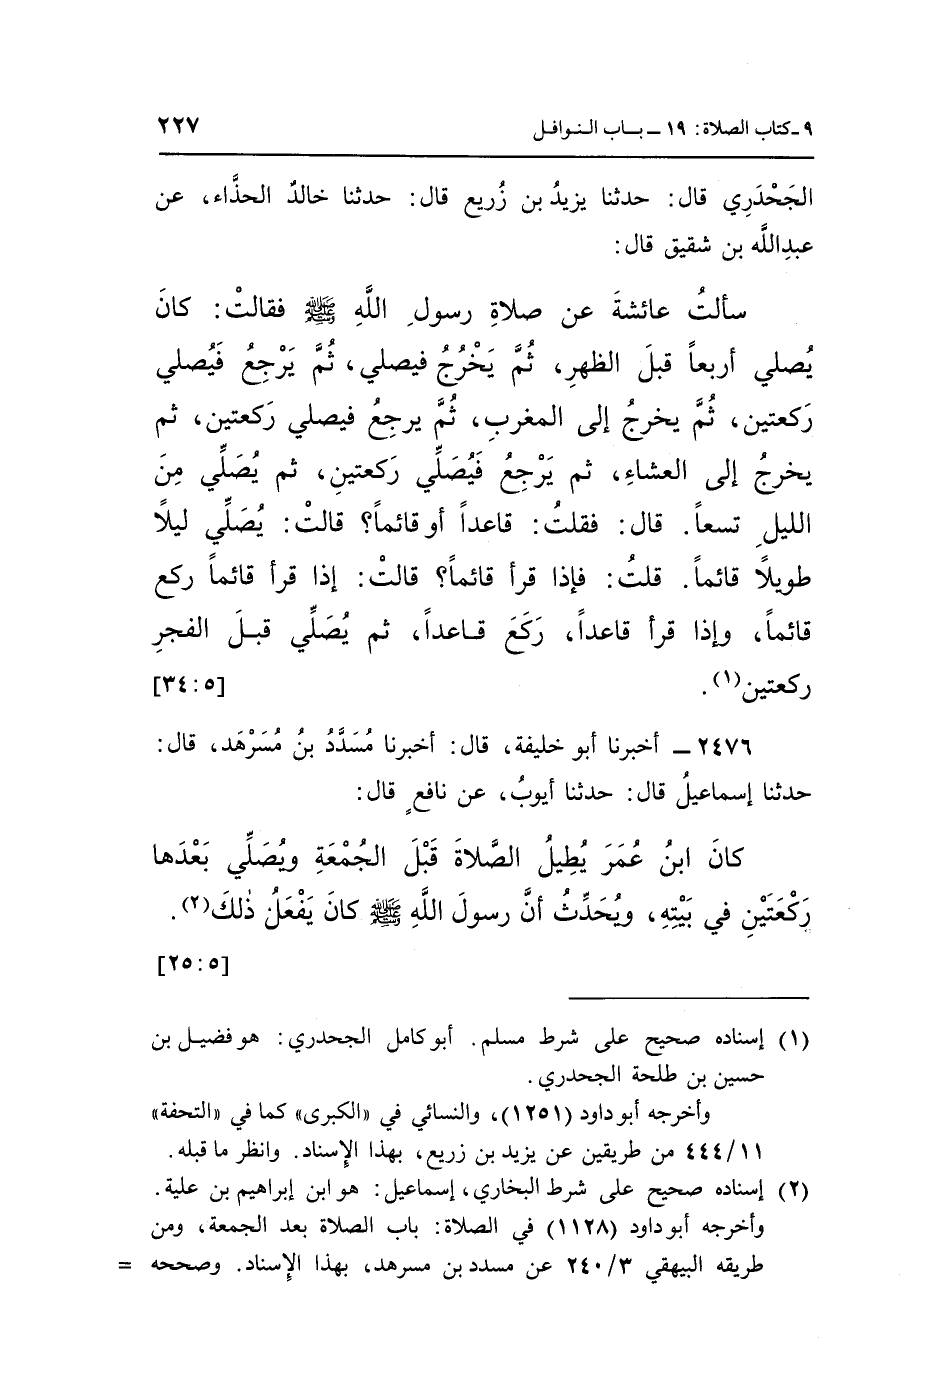 ٩ـ كتاب الصلاة: ١٩ ـ باب النوافل ٢٢٧
الجَحْدَرِي قال: حدثنا يزيدُ بن زُريع قال: حدثنا خالدٌ الحذَّاء، عن
عبدِاللَّه بن شقيق قال:
سألتُ عائشةَ عن صلاةِ رسولِ اللَّهِ ﷺ فقالتْ: كانَ
يُصلي أربعاً قبلَ الظهرِ، ثُمَّ يَخْرُجُ فيصلي، ثُمَّ يَرْجِعُ فَيُصلي
رَكعتين، ثُمَّ يخرجُ إلى المغربِ، ثُمَّ يرجِعُ فيصلي رَكعتين، ثم
يخرجُ إلى العشاءِ، ثم يَرْجِعُ فَيُصَلِّي رَكعتينِ، ثم يُصَلِّي مِنَ
الليلِ تسعاً. قال: فقلتُ: قاعداً أو قائماً؟ قالتْ: يُصَلِّي ليلاً
طويلاً قائماً. قلتُ: فإذا قرأ قائماً؟ قالتْ: إذا قرأ قائماً ركع
قائماً، وإذا قرأ قاعداً، رَكَعَ قاعداً، ثم يُصَلِّي قبلَ الفجرِ
ركعتين(١). [٣٤:٥]
٢٤٧٦ ـ أخبرنا أبو خليفة، قال: أخبرنا مُسَدَّدُ بنُ مُسَرْهَد، قال:
حدثنا إسماعيلُ قال: حدثنا أيوبُ، عن نافعٍ قال:
كانَ ابنُ عُمَرَ يُطِيلُ الصَّلاةَ قَبْلَ الجُمْعَةِ ويُصَلِّي بَعْدَها
رَكْعَتَيْنِ في بَيْتِهِ، ويُحَدِّثُ أنَّ رسولَ اللَّهِ ﷺ كانَ يَفْعَلُ ذٰلكَ(٢).
[٢٥:٥]
(١) إسناده صحيح على شرط مسلم. أبو كامل الجحدري: هو فضيل بن
حسين بن طلحة الجحدري.
وأخرجه أبو داود (١٢٥١)، والنسائي في «الكبرى» كما في «التحفة»
٤٤٤/١١ من طريقين عن يزيد بن زريع، بهذا الإسناد. وانظر ما قبله.
(٢) إسناده صحيح على شرط البخاري، إسماعيل: هو ابن إبراهيم بن علية.
وأخرجه أبو داود (١١٢٨) في الصلاة: باب الصلاة بعد الجمعة، ومن
طريقه البيهقي ٢٤٠/٣ عن مسدد بن مسرهد، بهذا الإسناد. وصححه =